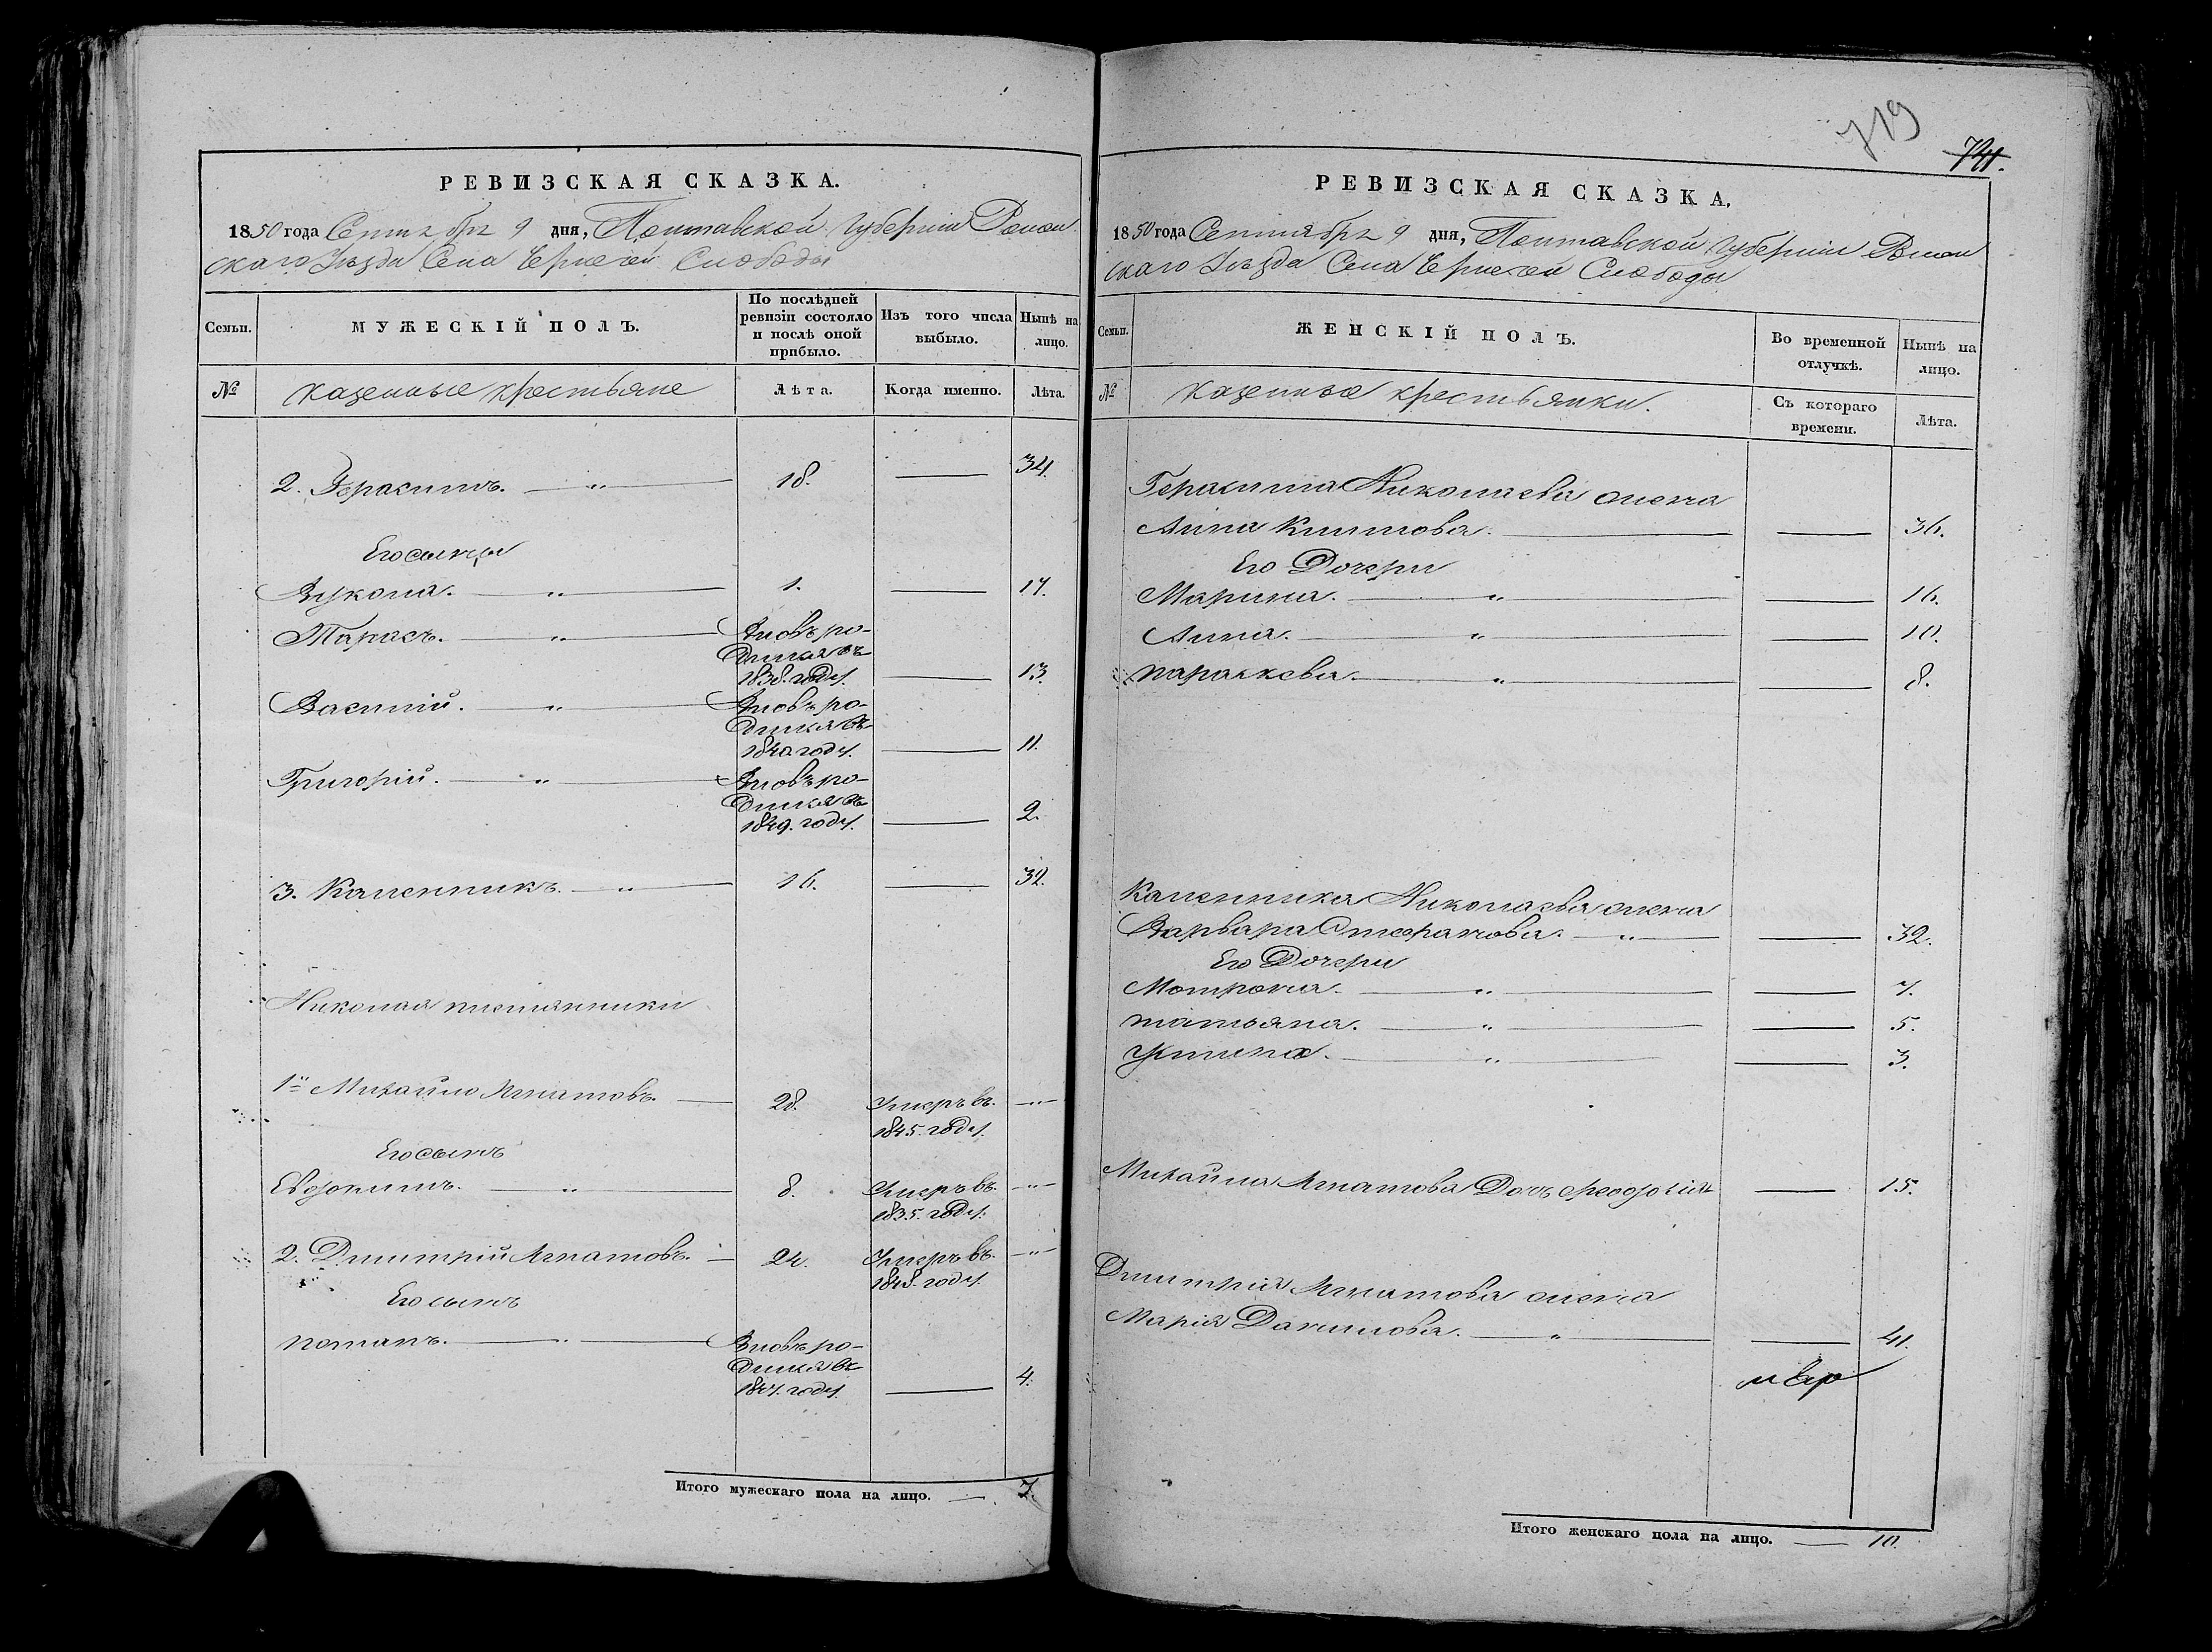 719
741.
РЕВИЗСКАЯ СКАЗКА.
1850 года Сентября 9 дня, Полтавской Губернии Ромен
скаго Уѣзда Села Чернечей Слободы
Семьи.
МУЖЕСКІЙ ПОЛЪ.
По послѣдней ревизіи состояло и послѣ оной прибыло.
Изъ того числа выбыло.
Нынѣ на лицо.
№
казенные крестьяне
Лѣта.
Когда именно.
Лѣта.
2. Герасимъ. — " — 18. — 34.
Его сыны
Вукола. — " — 1. — 17.
Тарасъ. — " — Вновь ро-
дился въ
1838. году. — 13.
Василій. — " — Вновь ро-
дился въ
1840. году. — 11.
Григорій. — " — Вновь ро-
дился въ
1849. году. — 2.
3. Каленникъ. — " — 16. — 32.
Николая племянники
1й Михайло Игнатовъ. — 28. Умеръ въ. — " —
1845. году.
Его сынъ
Евдокимъ. — " — 8. Умеръ въ. — " —
1835. году.
2. Дмитрій Игнатовъ. — 24. Умеръ въ. — " —
1848. году.
Его сынъ
Потапъ. — " — Вновь ро-
дился въ
1847. году. — 4.
Итого мужескаго пола на лицо. — 7.
РЕВИЗСКАЯ СКАЗКА.
1850 года Сентября 9 дня, Полтавской Губернии Ромен
скаго Уѣзда Села Чернечей Слободы
Семьи.
ЖЕНСКІЙ ПОЛЪ.
Во временной отлучкѣ.
Нынѣ на лицо.
№
казенные крестьянки.
Съ котораго времени.
Лѣта.
Герасима Николаева жена
Анна Климова. — — 36.
Его Дочери
Марина. — " — — 16.
Анна. — " — — 10.
Параскева. — " — — 8.
Каленника Николаева жена
Варвара Стефанова. — " — — 32.
Его Дочери
Мотрона. — " — — 7.
Татьяна. — " — — 5.
Устина. — " — — 3.
Михайла Игнатова Дочь Феодосія — 15.
Дмитрія Игнатова жена
Марія Данилова. — " — — 41.
Итого женскаго пола на лицо. — 10.